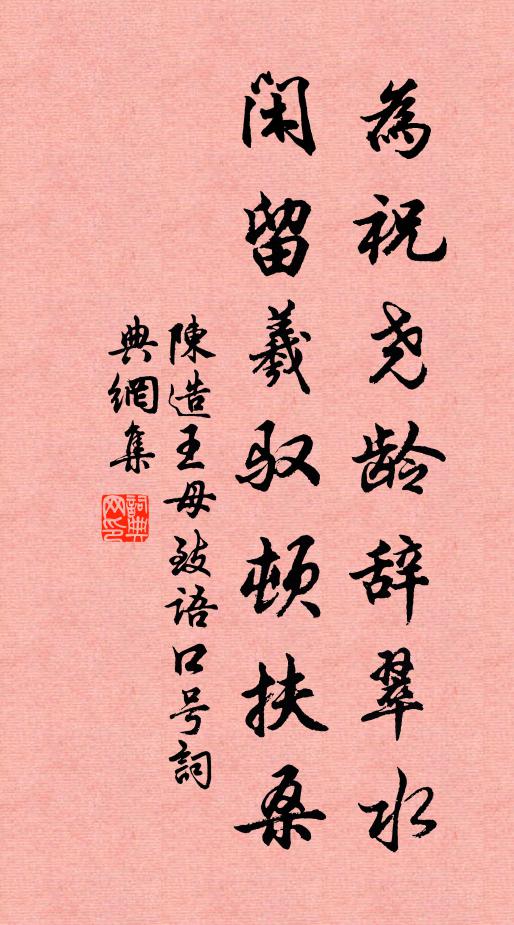 為祝尧龄辞翠水
闲留羲驭顿扶桑
陳造王母致语口号詞
典網集
詞典网印